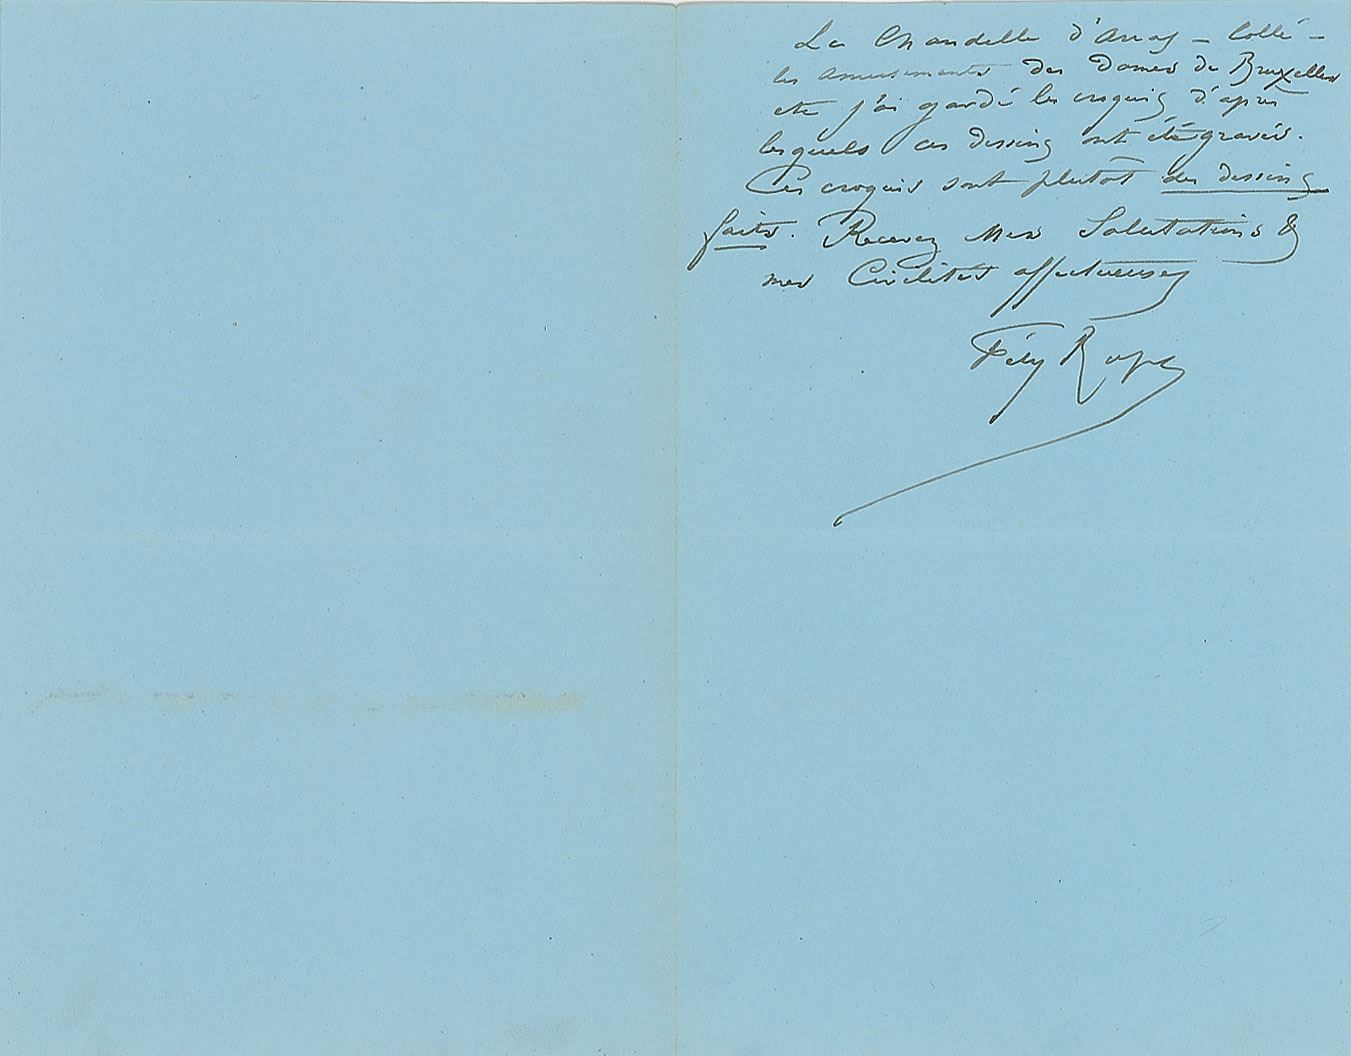 La Chandelle d'Arras – Collé –
les amusements des Dames de Bruxelles
etc j'ai gardé les croquis d'après
lesquels ces dessins ont été gravés.
Ces croquis sont plutôt des dessins
faits. Recevez Mes Salutations &
mes Civilités affectueuses
Fély Rops